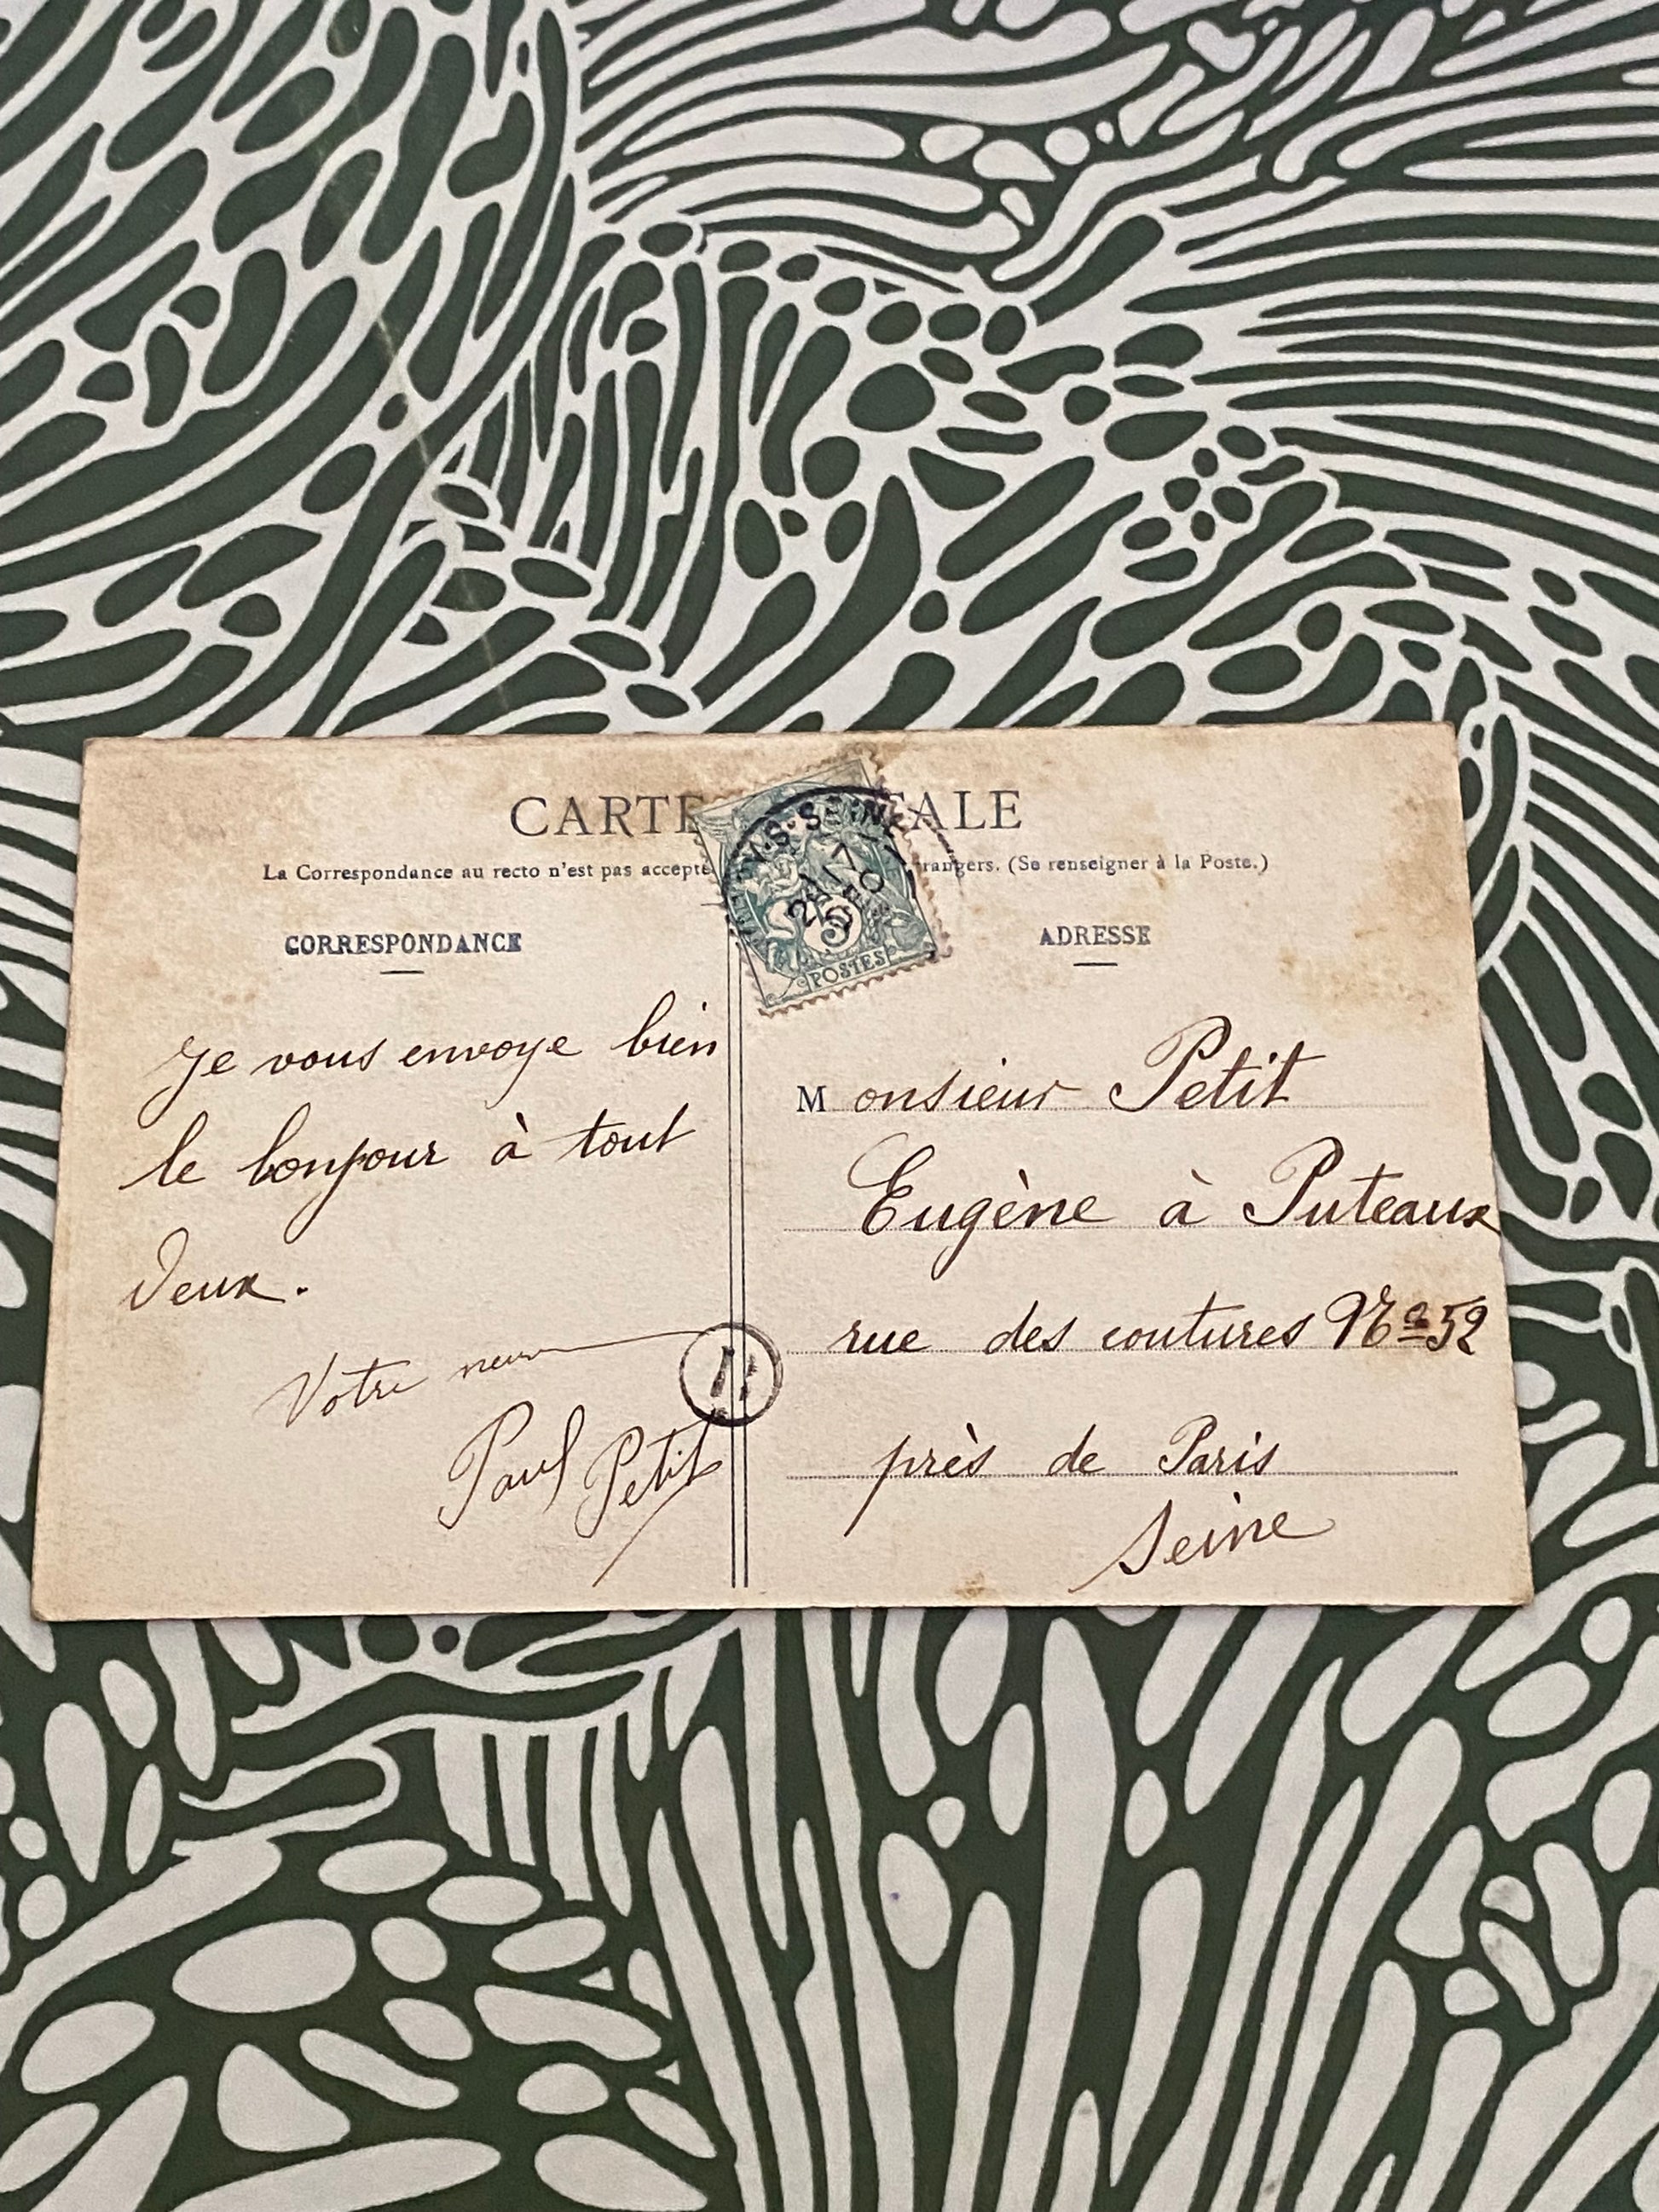 CARTE ALE
La Correspondance au recto n'est pas accepté rangers. (Se renseigner à la Poste.)
CORRESPONDANCE
Je vous envoye bien
le bonjour à tout
deux.
Votre
Paul Petit
POSTES
5
ADRESSE
Monsieur Petit
Eugène à Puteaux
rue des coutures No 52
près de Paris
Seine